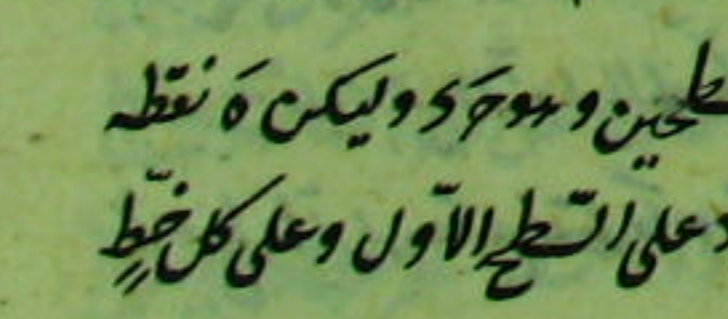 سطحين وهو حَرَى وليكن هَ نقطه
على السّطح الاوّل وعلى كل خطٍّ